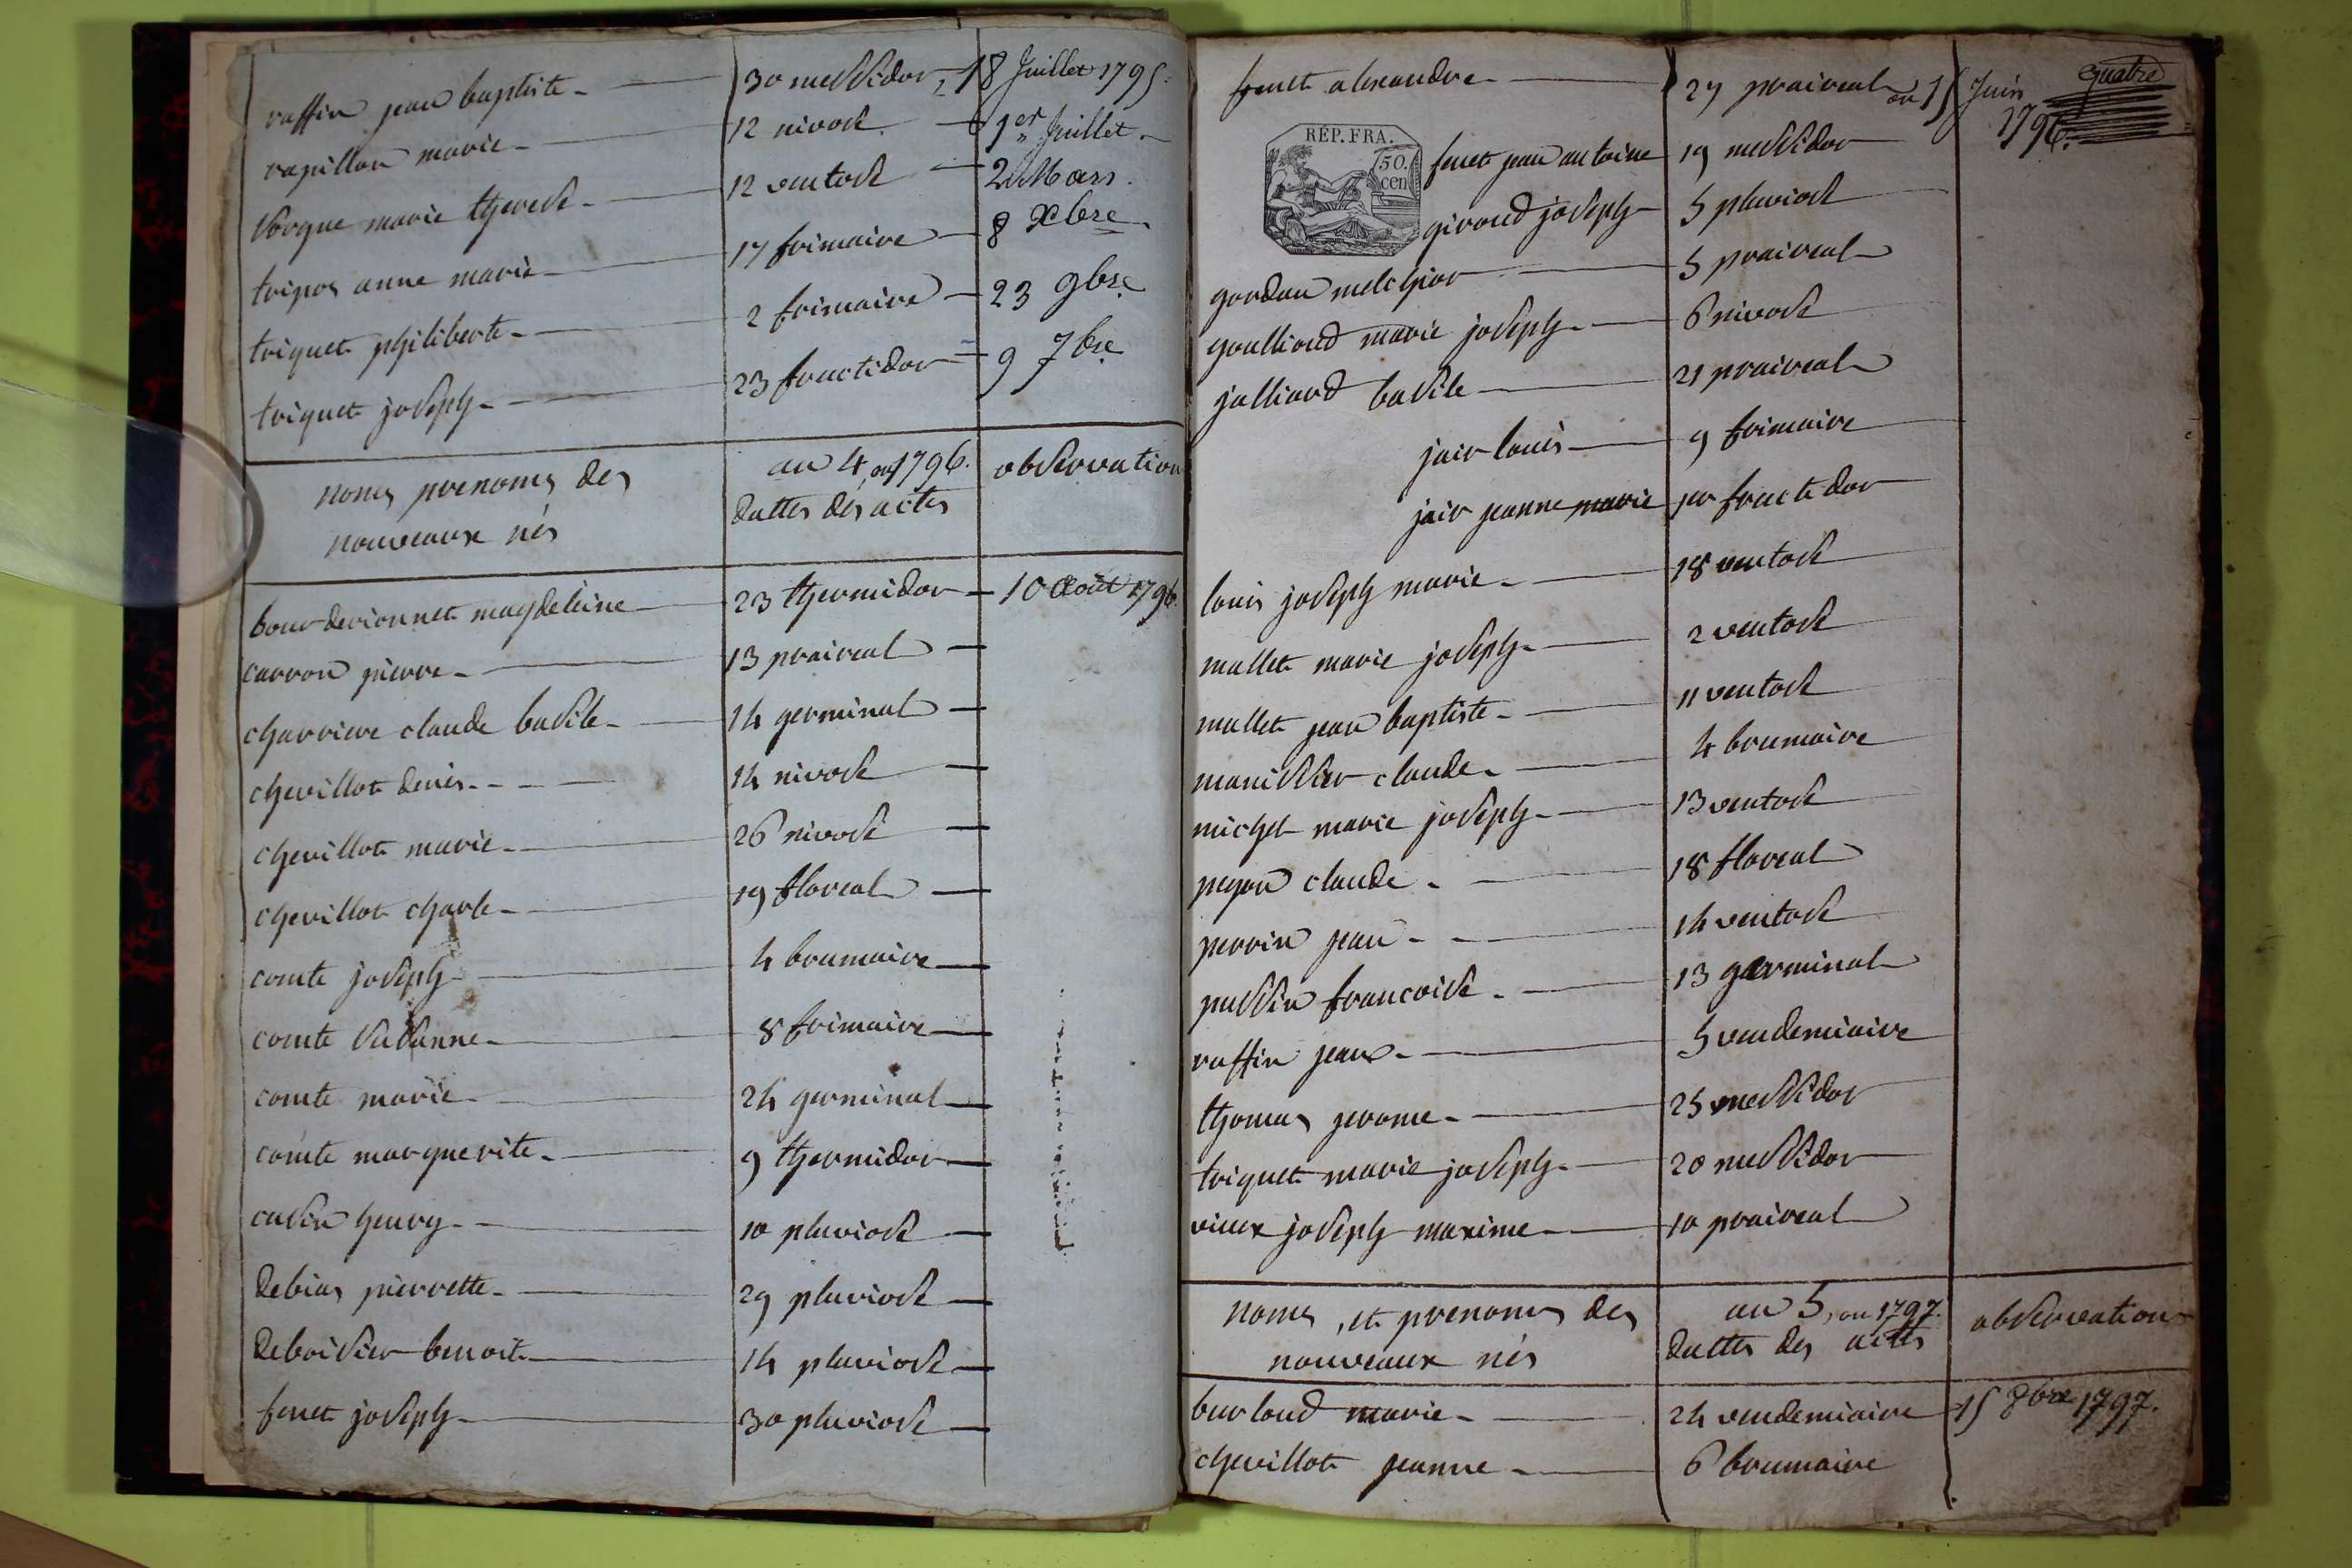 raffin jean baptiste - 30 messidor, 18 Juillet 1795.
rapillon marie - 12 nivose - 1er Juillet
vorque marie therese - 12 ventose - 2 Mars
tripoz anne marie - 17 frimaire - 8 Xbre
triquet philiberte - 2 frimaire - 23 9bre
triquet joseph - 23 fructidor - 9 7bre
noms prenoms des nouveaux nés
an 4, ou 1796. dattes des actes
observation
bourderionnet magdeleine - 23 thermidor - 10 Aoùt 1796.
carron pierre - 13 praireal -
charriere claude basile - 14 germinal -
chevillot denis - 14 nivose -
chevillot marie - 26 nivose -
chevillot charle - 19 floreal -
comte joseph - 4 brumaire -
comte susanne - 8 frimaire -
comte marie - 24 germinal -
comte marguerite - 9 thermidor -
cusin henry - 10 pluviose -
debias pierrette - 29 pluviose -
deboisier benoit - 14 pluviose -
fenet joseph - 30 pluviose -
quatre
fenet alexandre - 27 praireal ou 15 Juin 1796.
RÉP. FRA.
50. cen
fenet jean antoine 19 messidor
giroud joseph - 5 pluviose
gordan melchior - 5 praireal
goullioud marie joseph - 6 nivose
jalliard basile - 21 praireal
jair louis - 9 frimaire
jair jeanne marie pr fructidor
louis joseph marie - 18 ventose
mallet marie joseph - 2 ventose
mallet jean baptiste - 11 ventose
manissier claude - 4 brumaire
michel marie joseph - 13 ventose
pegon claude - 18 floreal
perrin jean - 14 ventose
pussin francoise - 13 germinal
raffin jean - 5 vendemiaire
thomas jerome - 25 messidor
triquet marie joseph - 20 messidor
vieux joseph maxime - 10 praireal
noms, et prenoms des nouveaux nés
an 5, ou 1797. dattes des actes
observation
burloud marie - 24 vendemiaire - 15 8bre 1797.
chevillot jeanne - 6 brumaire